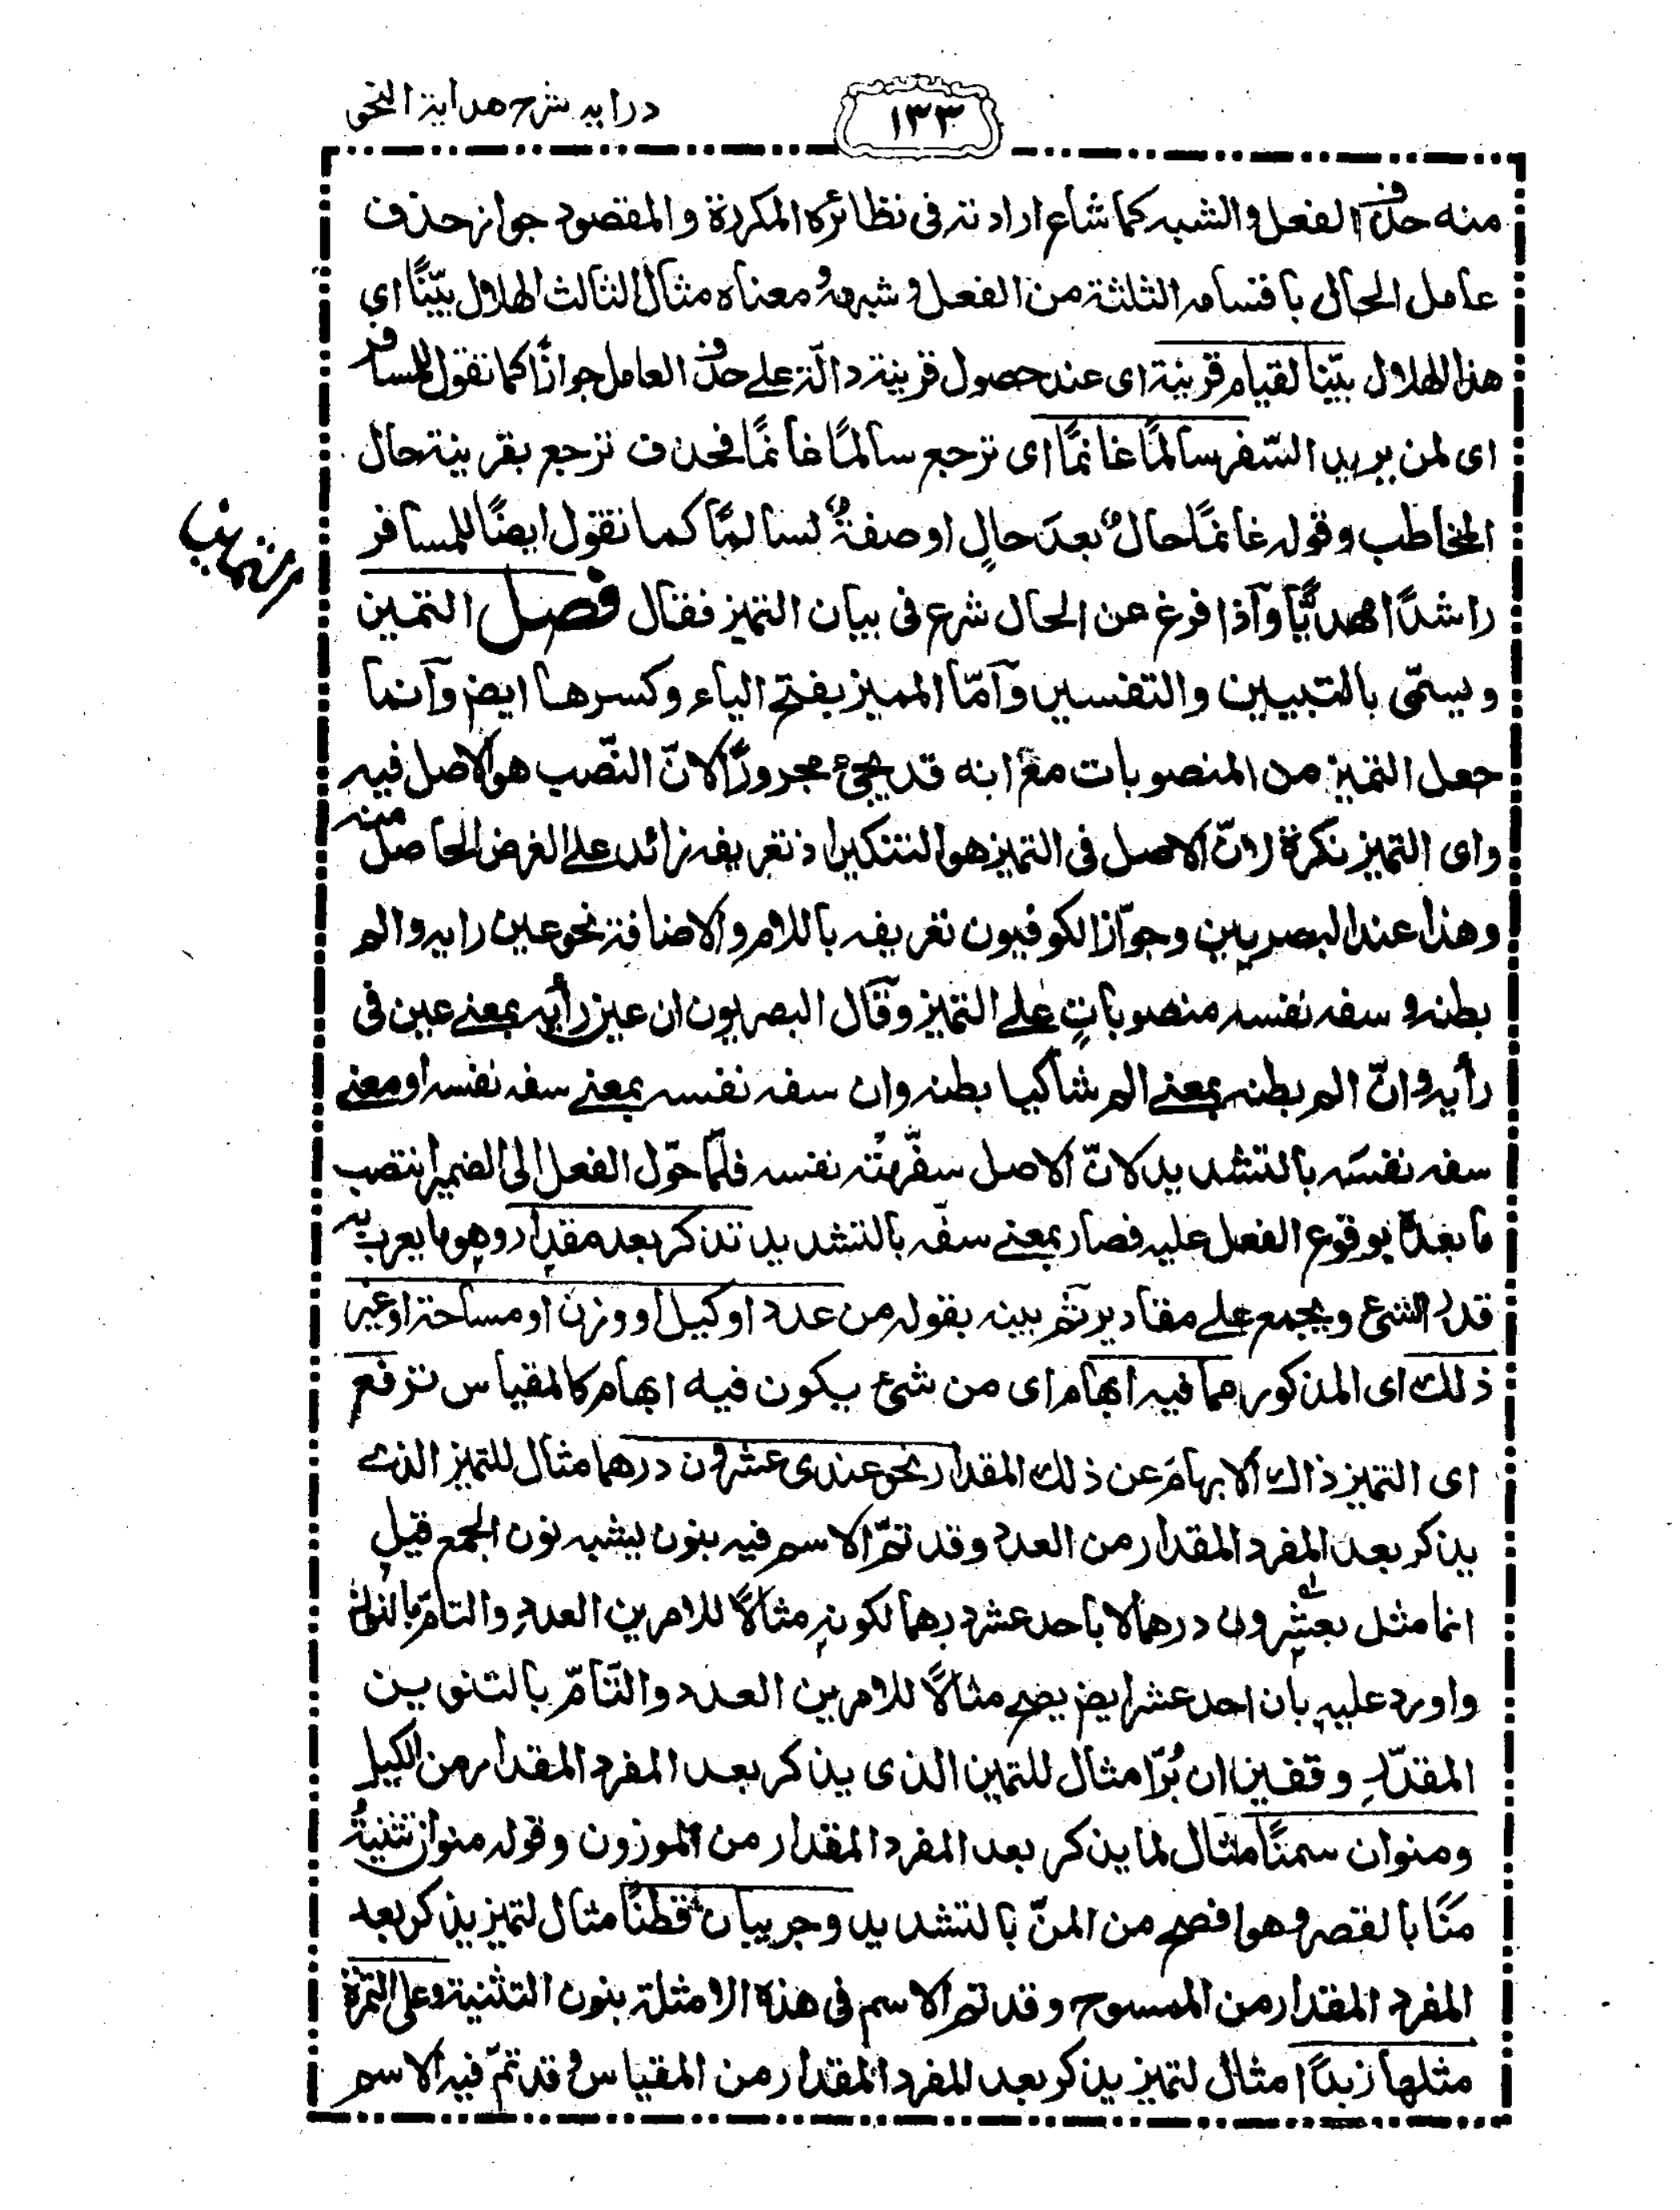 درايه شرح هداية النحو
١٣٣
منه حذف الفعل والشبه كما شاع ارادته فى نظائره المكررة والمقصود جواز حذف
عامل الحال باقسامه الثلثة من الفعل وشبهه ومعناه مثال الثالث الهلال بيّنًا اى
هذا الهلال بيّنا لقيام قرينة اى عند حصول قرينة دالّة على حذف العامل جوازًا كما تقول للمسافر
اى لمن يريد السّفر سالمًا غانمًا اى ترجع سالمًا غانمًا فحذف ترجع بقرينة حال
المخاطب وقوله غانمًا حالٌ بعدَ حالٍ او صفةٌ لسالمًا كما تقول ايضًا للمسافر
راشدًا مهديًّا وآذا فرغ عن الحال شرع فى بيان التميز فقال فصل التميز
ويسمّى بالتبيين والتفسير وآمّا المميز بفتح الياء وكسرها ايض وآنما
جعل التميز من المنصوبات مع انه قد يجئ مجرورًا لانّ النّصب هو الاصل فيه
واى التميز نكرة لانّ الاصل فى التميز هو التنكير اذ تعريفه زائد على الغرض الحاصل منه
وهذا عند البصريين وجوّاز الكوفيون تعريفه باللام والاضافة نحو عين رايه والم
بطنه و سفه نفسه منصوباتٍ على التميز وقال البصريون ان عين رأيه بمعنى عين فى
رأيه وانّ الم بطنه بمعنى الم شاكيا بطنه وان سفه نفسه بمعنى سفه نفسه او معنى
سفه نفسَه بالتشديد لانّ الاصل سفّهتُه نفسه فلمّا حوّل الفعل الى الضمير انتصب
ما بعدهٗ بوقوع الفعل عليه فصار بمعنى سفّه بالتشديد تذكر بعد مقدار وهو ما يعرب به
قدر الشئ ويجمع على مقادير ثم بينه بقوله من عدد او كيل او وزن او مساحة او غير
ذلك اى المذكور مما فيه ابهام اى من شئ يكون فيه ابهام كالمقياس ترفع
اى التميز ذاك الابهامَ عن ذلك المقدار نحو عندى عشرون درهما مثال للتميز الذى
يذكر بعد المفرد المقدار من العدد وقد تمّ الاسم فيه بنون يشبه نون الجمع قيل
انما مثل بعشرون درهما لا باحد عشر درهما لكونه مثالًا للامرين العدد والتامّ بالنون
واورد عليه بان احد عشر ايض يصح مثالًا للامرين العدد والتّامّ بالتنوين
المقدّر وقفيزان بُرّا مثال للتميز الذى يذكر بعد المفرد المقدار من الكيل
ومنوان سمنًا مثال لما يذكر بعد المفرد المقدار من الموزون وقوله منوان تثنيةُ
مَنًا بالقصر وهو افصح من المنّ بالتشديد وجريبان قطنًا مثال لتميز يذكر بعد
المفرد المقدار من الممسوح وقد تم الاسم فى هذه الامثلة بنون التثنية وعلى التمرة
مثلها زبدًا مثال لتميز يذكر بعد المفرد المقدار من المقياس وقد تمّ فيه الاسم